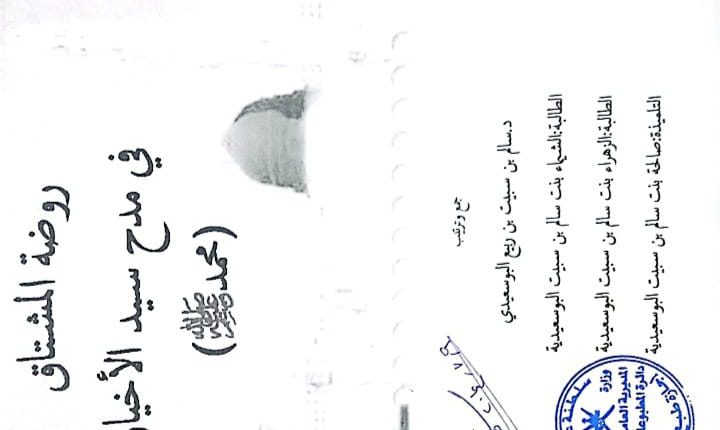 روضة المشتاق
في مدح سيد الأخيار
(محمد ﷺ)
جمع وترتيب
د.سالم بن سبيت بن ربيع البوسعيدي
الطالبة:الشيماء بنت سالم بن سبيت البوسعيدية
الطالبة:الزهراء بنت سالم بن سبيت البوسعيدية
التلميذة:صالحة بنت سالم بن سبيت البوسعيدية
سلطنة
وزارة
المديرية العامة
دائرة المطبوعات